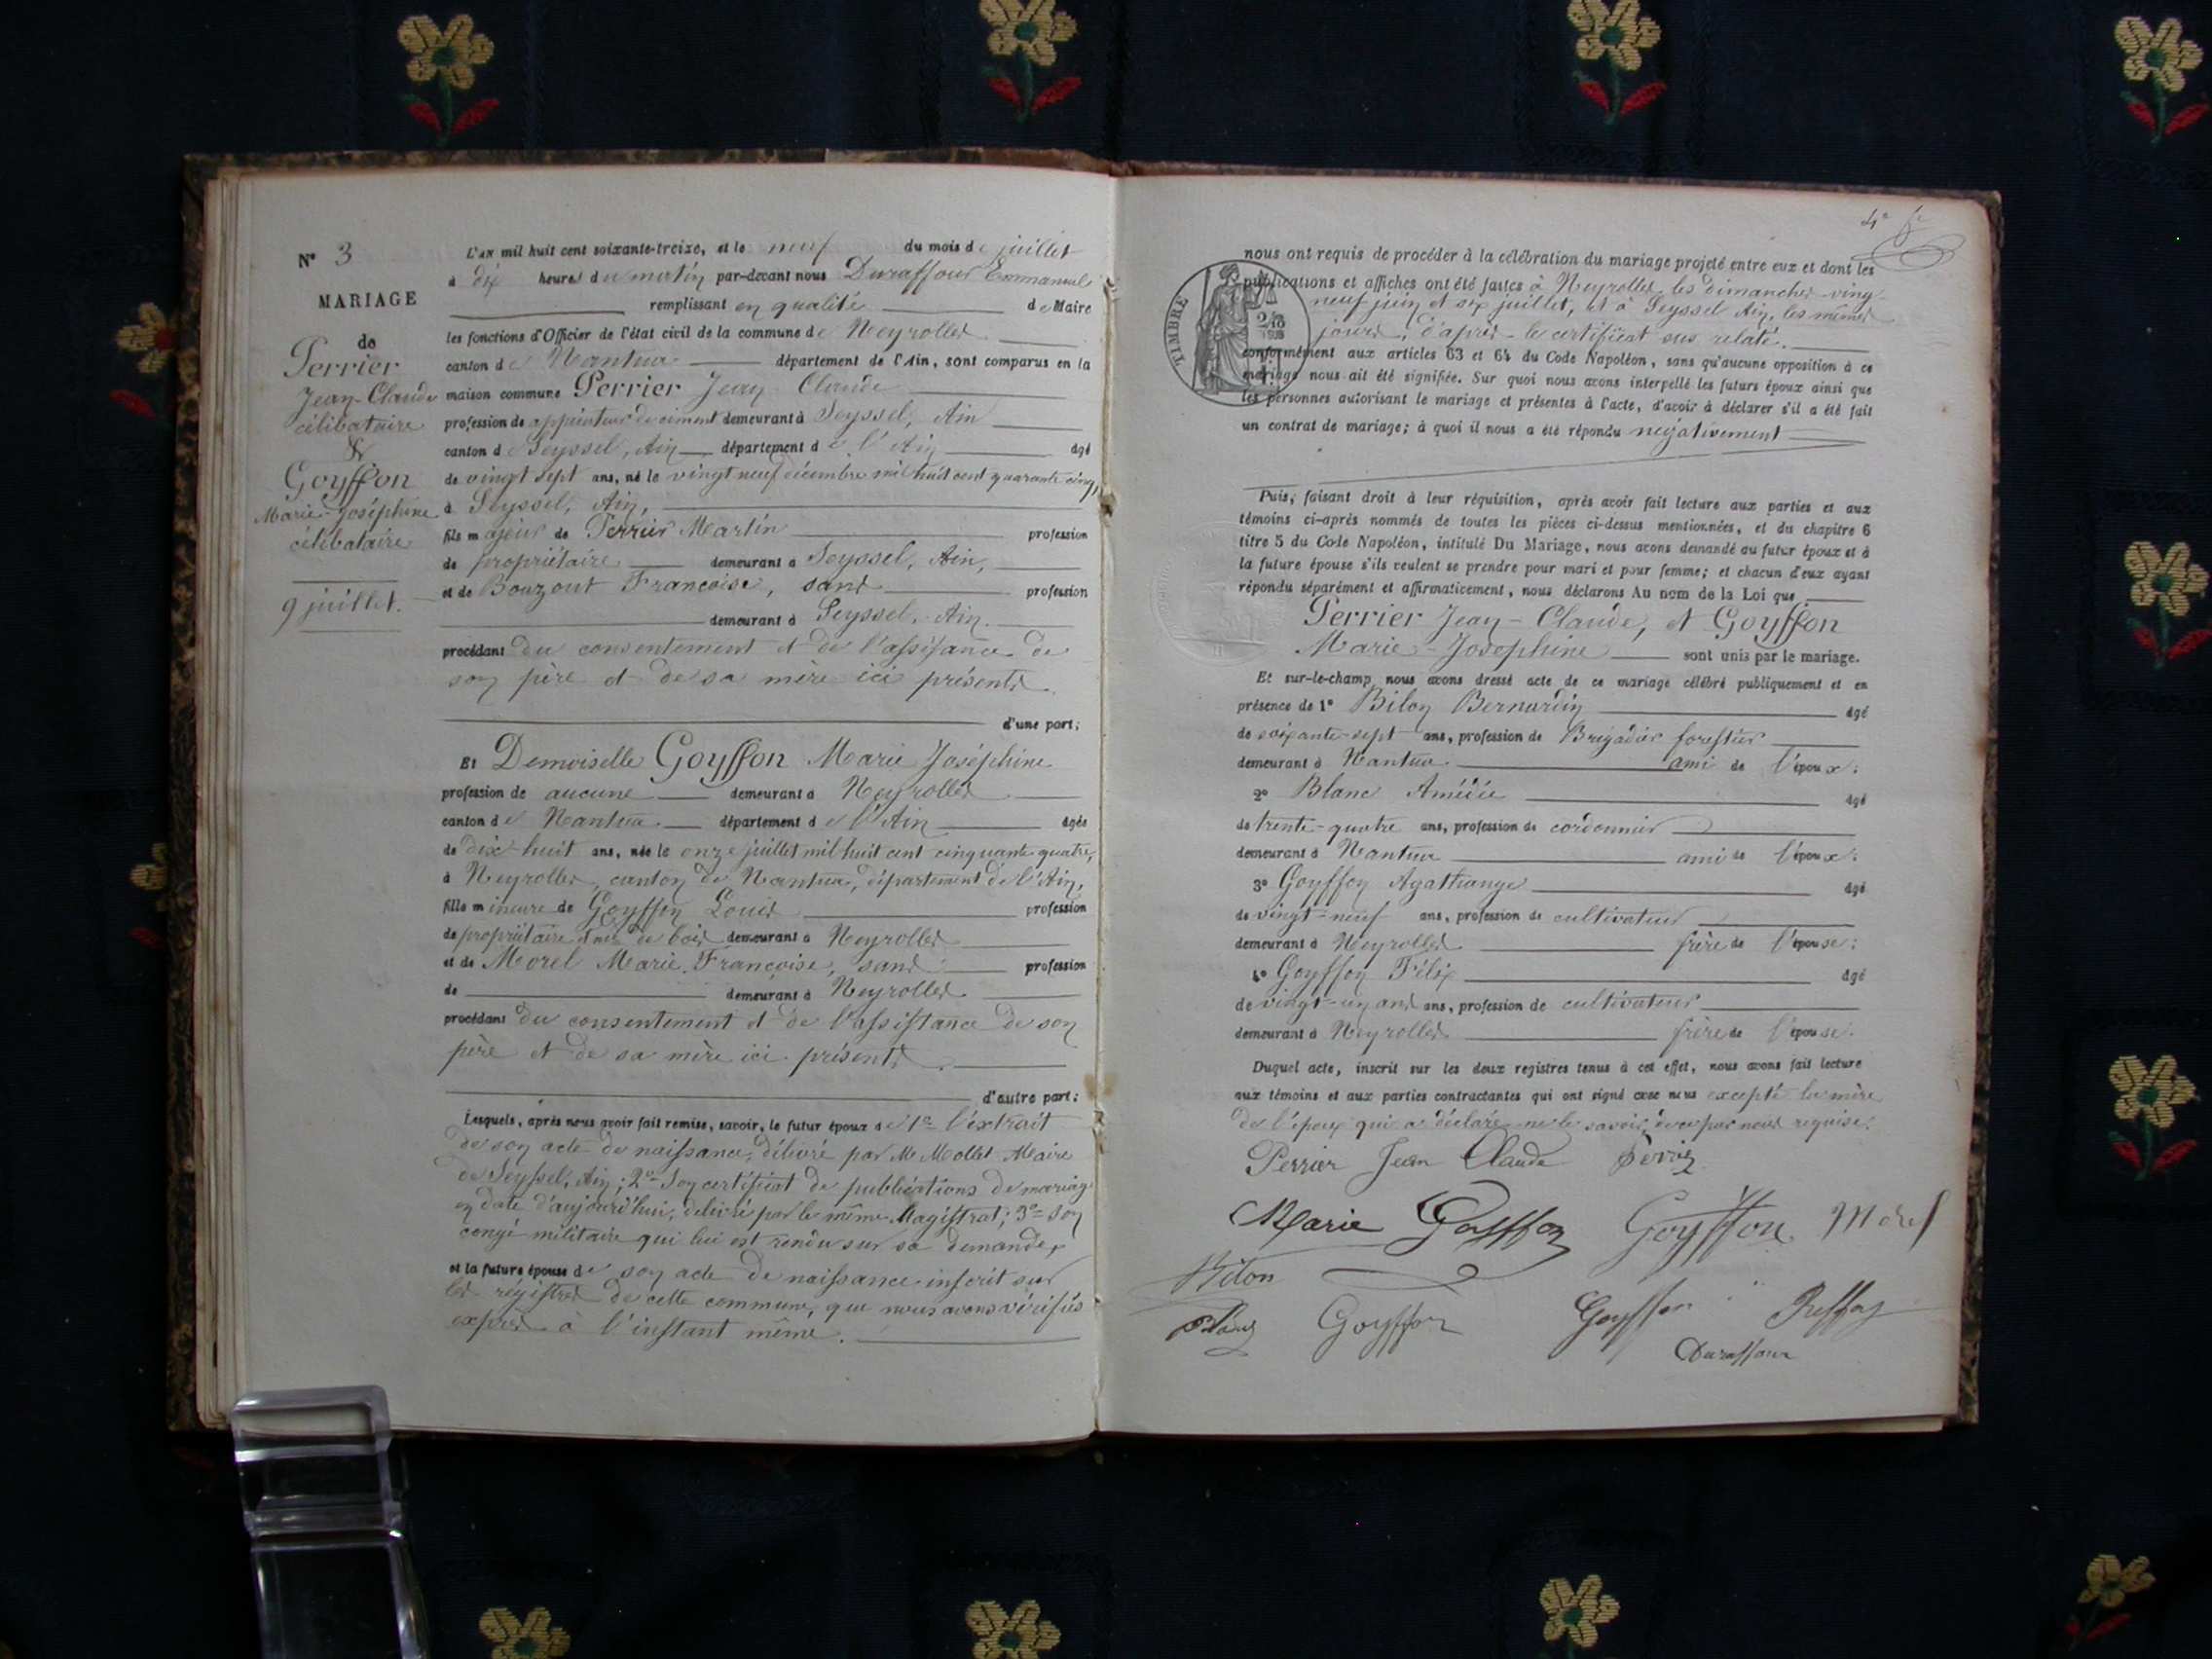 N° 3
MARIAGE
de
Perrier
Jean-Claude
célibataire
&
Goyffon
Marie-Joséphine
célibataire
9 juillet.
L'AN mil huit cent soixante-treize, et le neuf du mois de juillet
à dix heures du matin par-devant nous Duraffour Emmanuel
remplissant en qualité de Maire
les fonctions d'Officier de l'état civil de la commune de Neyrolles
canton de Nantua département de l'Ain, sont comparus en la
maison commune Perrier Jean Claude
profession de appointeur de ciment demeurant à Seyssel, Ain
canton de Seyssel, Ain département de l'Ain âgé
de vingt sept ans, né le vingt neuf décembre mil huit cent quarante cinq,
à Seyssel, Ain,
fils majeur de Perrier Martin profession
de propriétaire demeurant à Seyssel, Ain,
et de Bouzout Francoise, sans profession
demeurant à Seyssel, Ain.
procédant du consentement et de l'assisance de
son père et de sa mère ici présents.
d'une part;
Et Demoiselle Goyffon Marie Joséphine
profession de aucune demeurant à Neyrolles
canton de Nantua département de l'Ain âgée
de dix-huit ans, née le onze juillet mil huit cent cinquante quatre,
à Neyrolles, canton de Nantua, département de l'Ain,
fille mineure de Goyffon Louis profession
de propriétaire et md de bois demeurant à Neyrolles
et de Morel Marie Françoise, sans profession
de demeurant à Neyrolles
procédant du consentement et de l'assistance de son
père et de sa mère ici présents.
d'autre part;
Lesquels, après nous avoir fait remise, savoir, le futur époux de 1° l'extrait
de son acte de naissance, délivré par Mr Mollet Maire
de Seyssel, Ain; 2° Son certificat de publications de mariage
en date d'aujourd'hui, délivré par le même Magistrat; 3° Son
congé militaire qui lui est rendu sur sa demande,
et la future épouse de son acte de naissance inscrit sur
les régistres de cette commune, que nous avons vérifiés
exprès à l'instant même.
4e
nous ont requis de procéder à la célébration du mariage projeté entre eux et dont les
publications et affiches ont été faites à Neyrolles, les dimanches vingt
neuf juin et six juillet, et à Seyssel Ain, les mêmes
jours, d'après le certificat sus relaté.
TIMBRE
conformément aux articles 63 et 64 du Code Napoléon, sans qu'aucune opposition à ce
mariage nous ait été signifiée. Sur quoi nous avons interpellé les futurs époux ainsi que
les personnes autorisant le mariage et présentes à l'acte, d'avoir à déclarer s'il a été fait
un contrat de mariage; à quoi il nous a été répondu négativement
Puis, faisant droit à leur réquisition, après avoir fait lecture aux parties et aux
témoins ci-après nommés de toutes les pièces ci-dessus mentionnées, et du chapitre 6
titre 5 du Code Napoléon, intitulé Du Mariage, nous avons demandé au futur époux et à
la future épouse s'ils veulent se prendre pour mari et pour femme; et chacun d'eux ayant
répondu séparément et affirmativement, nous déclarons Au nom de la Loi que
Perrier Jean-Claude, et Goyffon
Marie-Josephine sont unis par le mariage.
Et sur-le-champ nous avons dressé acte de ce mariage célébré publiquement et en
présence de 1° Bilon Bernardin âgé
de soixante-sept ans, profession de Brigadier forestier
demeurant à Nantua ami de l'époux;
2° Blanc Amédée âgé
de trente-quatre ans, profession de cordonnier
demeurant à Nantua ami de l'époux;
3° Goyffon Agathange âgé
de vingt-neuf ans, profession de cultivateur
demeurant à Neyrolles frère de l'épouse;
4° Goyffon Félix âgé
de vingt-un ans ans, profession de cultivateur
demeurant à Neyrolles frère de l'épouse.
Duquel acte, inscrit sur les deux registres tenus à cet effet, nous avons fait lecture
aux témoins et aux parties contractantes qui ont signé avec nous excepté la mère
de l'époux qui a déclaré ne le savoir, de ce par nous requise.
Perrier Jean Claude Perrier
Marie Goyffon Goyffon Morel
Bilon
Blanc Goyffon Goyffon Reffay
Duraffour